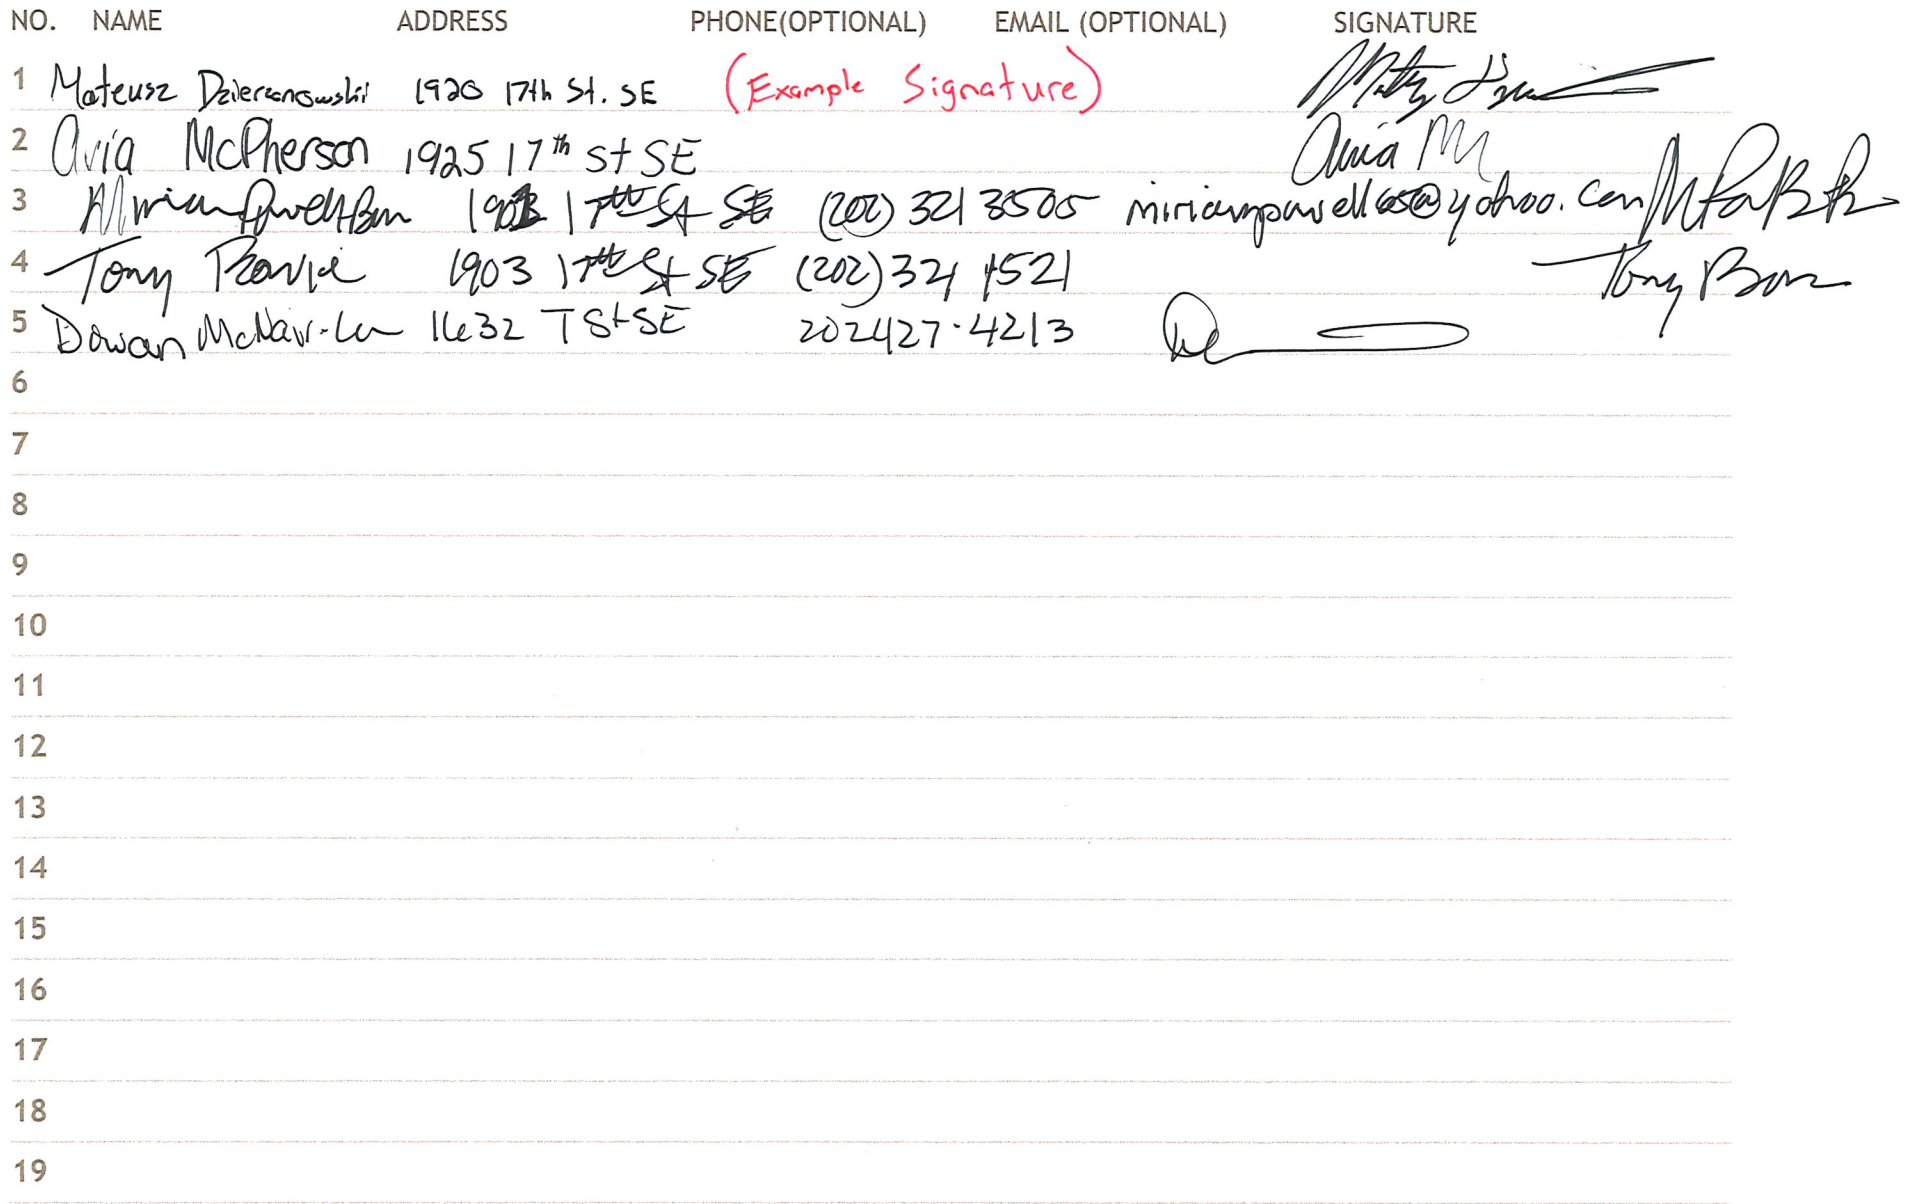 NO. NAME ADDRESS PHONE(OPTIONAL) EMAIL (OPTIONAL) SIGNATURE
1 Mateusz Dzierzanowski 1920 17th St. SE (Example Signature)
2 Avia McPherson 1925 17th St SE Avia
3 1903 17th St SE (202) 321 3505
4 Tony 1903 17th St SE (202) 321 1521 Tony
5 Dowan McNair-Lee 1632 T St SE 202427.4213
6
7
8
9
10
11
12
13
14
15
16
17
18
19